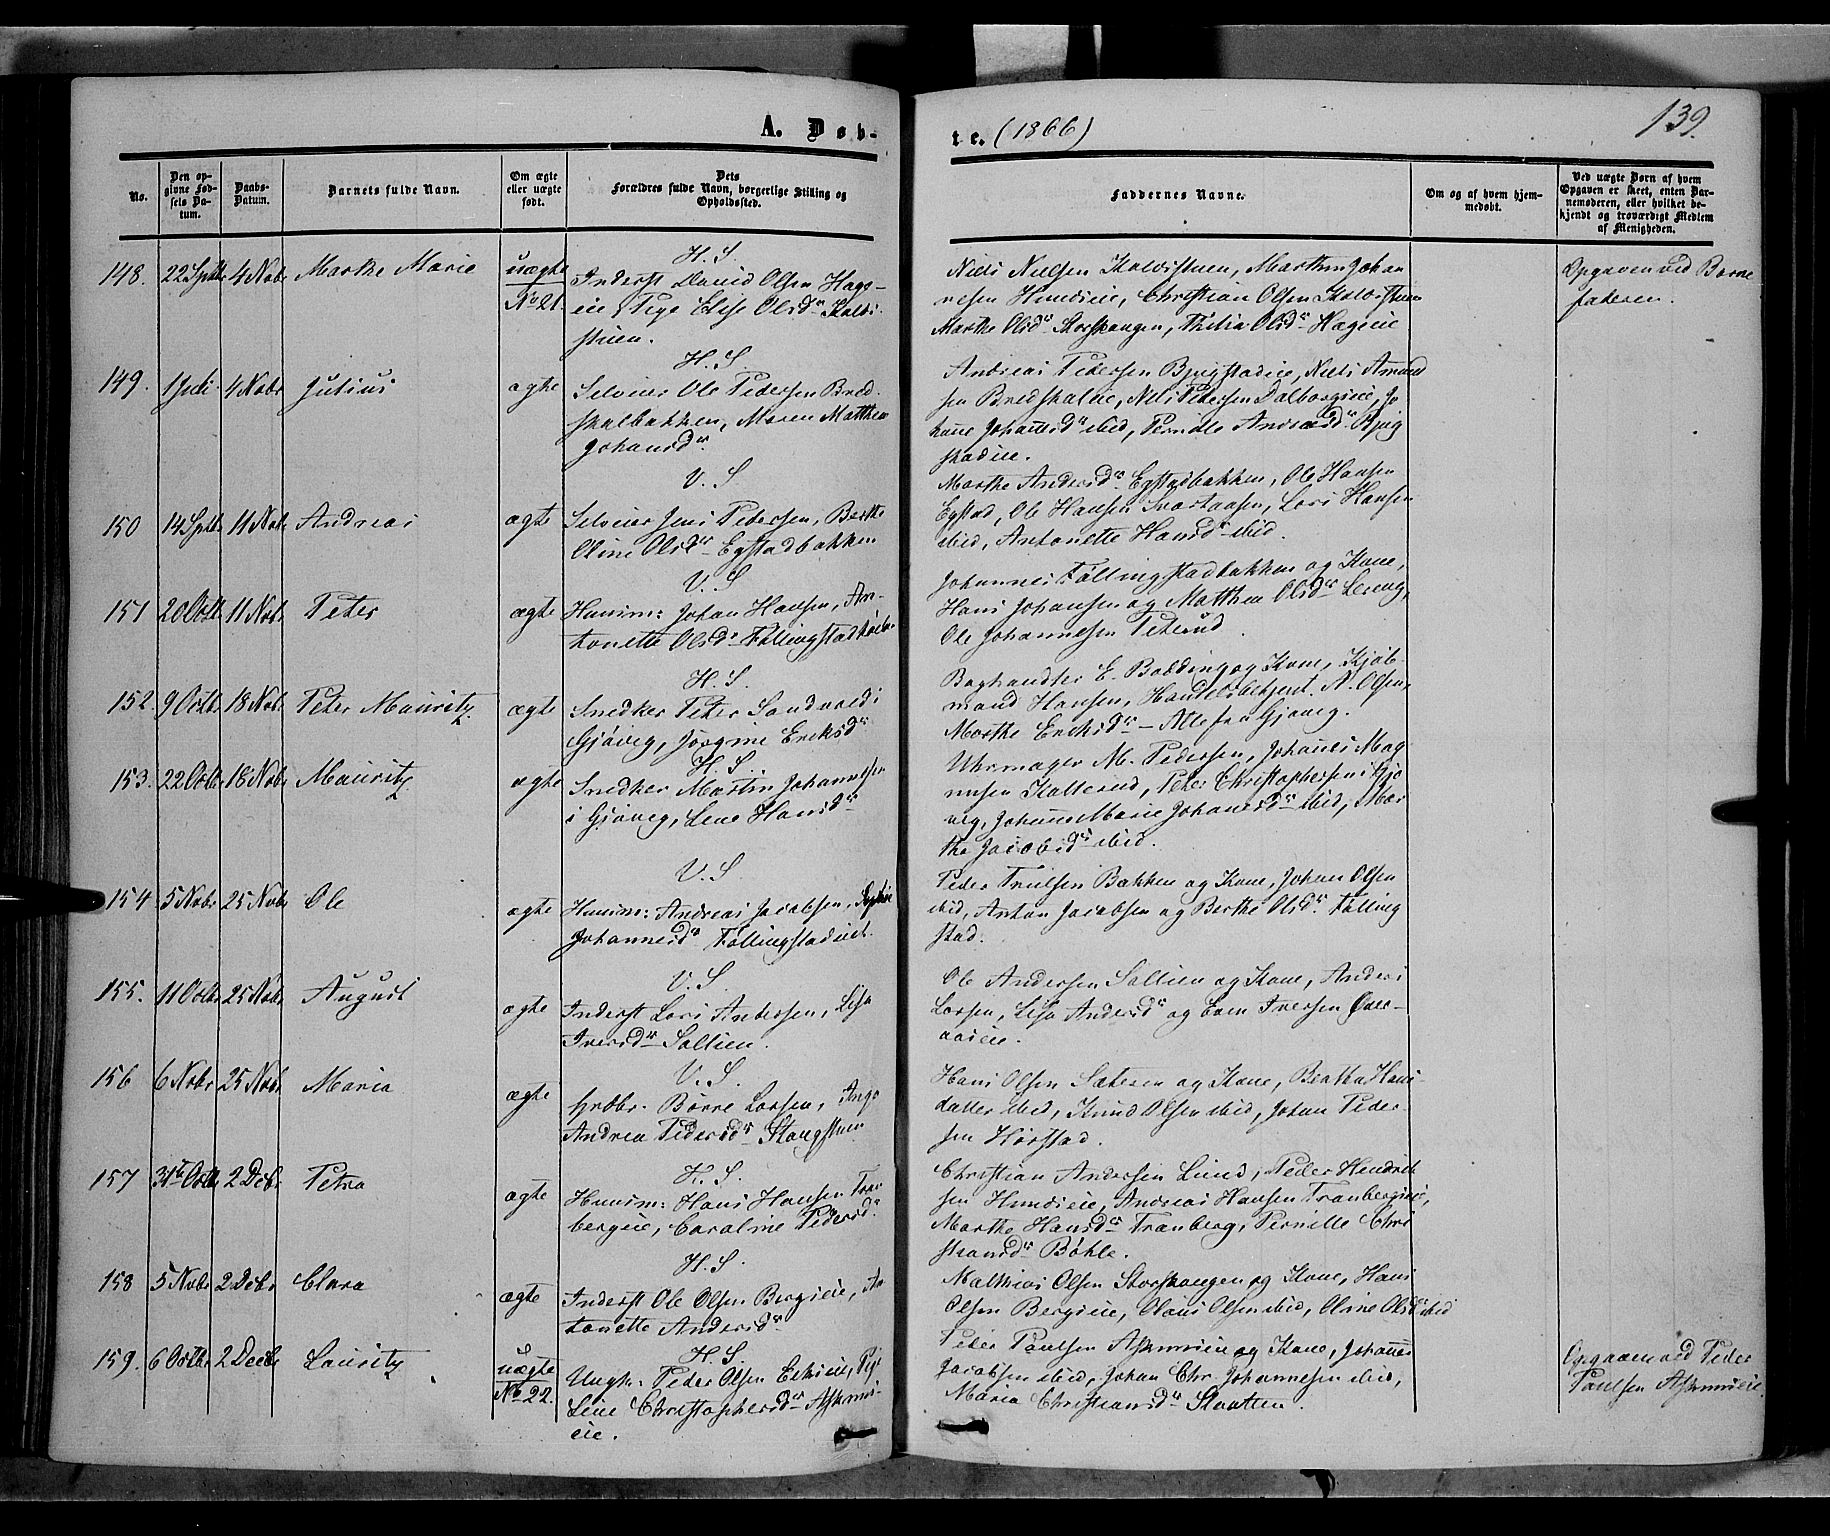 A. Døb-
te. (1866)
139.
No.
Den op-
givne Fød-
sels Da-
tum.
Daabs-
Datum.
Barnets fulde Navn.
Om ægte
eller uægte
født.
Dets
Forældres fulde Navn, borgerlige Stilling og
Opholdssted.
Faddernes Navne.
Om og af hvem hjem-
medøbt.
Ved uægte Børn af hvem
Opgaven er skeet, enten Bar-
nemoderen, eller hvilket be-
kjendt og troværdigt Medlem
af Menigheden.
148. 22 Septbr 4 Nobr Marthe Marie uægte
No 21.
H. S.
Inderst David Olsen Hage-
eie, Pige Elise Olsdr Kalvi-
stuen.
Niels Nielsen Kalvistuen, Marthin Johan
nesen Hundeie, Christian Olsen Kalvistuen
Marthe Olsdr Storskaugen, Thilia Olsdr Hageeie
Opgaven ved Barne
faderen.
149. 1 Juli 4 Nobr Julius ægte
H. S.
Selveier Ole Pedersen Bred-
skalbakken, Maren Matthea
Johansdr.
Andreas Pedersen Bjugstadeie, Niels Amund
sen Bredskaleie, Nils Pedersen Dalborgeie, Jo
hanne Johannesdr ibid, Pernille Andersdr Bjug
stadeie.
150 14 Septbr 11 Nobr Andreas ægte
V. S
Selveier Jens Pedersen, Berthe
Oline Olsdr Egstadbakken
Marthe Andersdr Egstadbakken, Ole Hansen
Egstad, Ole Hansen Svartaasen, Lars Hansen
ibid, Antonette Hansdr ibid.
151 20 Octb 11 Nobr Peter ægte
V. S
Huusm: Johan Hansen, An-
tonette Olsdr Føllingstad
Johannes Føllingstadbakken og Kone,
Hans Johansen og Matthea Olsdr
Ole Johannesen Peterud
152. 9 Octbr 18 Nobr Peter Mauritz. ægte
H. S.
Snedker Peter Sandvold i
Gjøvig, Jørgine Eriksdr
Boghandler E. Bolding og Kone, Kjøb-
mand Hansen, Handelsbetjent N. Olsen,
Marthe Eriksdr – Alle fra Gjøvig.
153. 22 Octbr 18 Nobr Mauritz ægte
H. S.
Snedker Martin Johannesen
i Gjøvig, Lene Hansdr
Uhrmager M. Pedersen, Johannes Mag
nusen Kallerud, Peter Christophersen i Gjø
vig, Johanne Marie Johannesdr ibid, Mar
the Jacobsdr ibid.
154 5 Nobr 25 Nobr Ole ægte
V. S
Huusm: Andreas Jacobsen, Sophie
Johannesdr Føllingstadeiet.
Peder Trulsen Bakken og Kone, Johan Olsen
ibid, Anton Jacobsen og Berthe Olsdr Følling
stad.
155. 11 Octbr 25 Nobr August ægte
V. S
Inderst Lars Andersen, Lisa
Iversdr Sollien.
Ole Andersen Sollien og Kone, Anders
Larsen, Lisa Andersdr og Even Iversen Over-
aaseie.
156 6 Nobr 25 Nobr Maria ægte
V. S.
Grdbr. Børre Larsen, Inga
Andrea Pedersdr Stangstuen
Hans Olsen Sæteren og Kone, Beatha Hans-
datter ibid, Knud Olsen ibid, Johan Peder-
sen Hørstad.
157 31te Octb 2 Debr Petra ægte
H. S.
Huusm: Hans Hansen Tran
bergeie, Caroline Pedersdr.
Christian Andersen Lund, Peder Hendrik
sen Hundeie, Andreas Hansen Tranbergeie,
Marthe Hansdr Tranberg, Pernille Chri
stiansdr Bøhle.
158 5 Nobr 2 Debr Clara ægte
H. S.
Inderst Ole Olsen Bergseie, An
tonette Andersdr
Mathias Olsen Storskaugen og Kone, Hans
Olsen Bergseie, Olaus Olsen ibid, Oline Olsdr ibid
159. 6 Octbr 2 Decbr Lauritz uægte
No 22.
H. S
Ungk: Peder Olsen Eeknieie, Pige
Lene Christophersdr Askimei-
eie.
Peder Paulsen Askimeie og Kone, Johannes
Jacobsen ibid, Johan Chr. Johannesen ibid,
Maria Christiansdr Slaatten.
Opgaven ved Peder
Paulsen Askimeie.